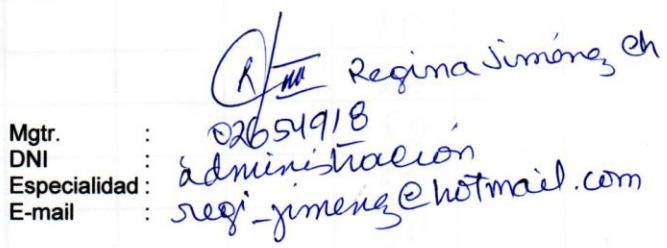 Regina Jiménez Ch
Mgtr. :
DNI : 02654918
Especialidad : administración
E-mail : regi_jimenez@hotmail.com